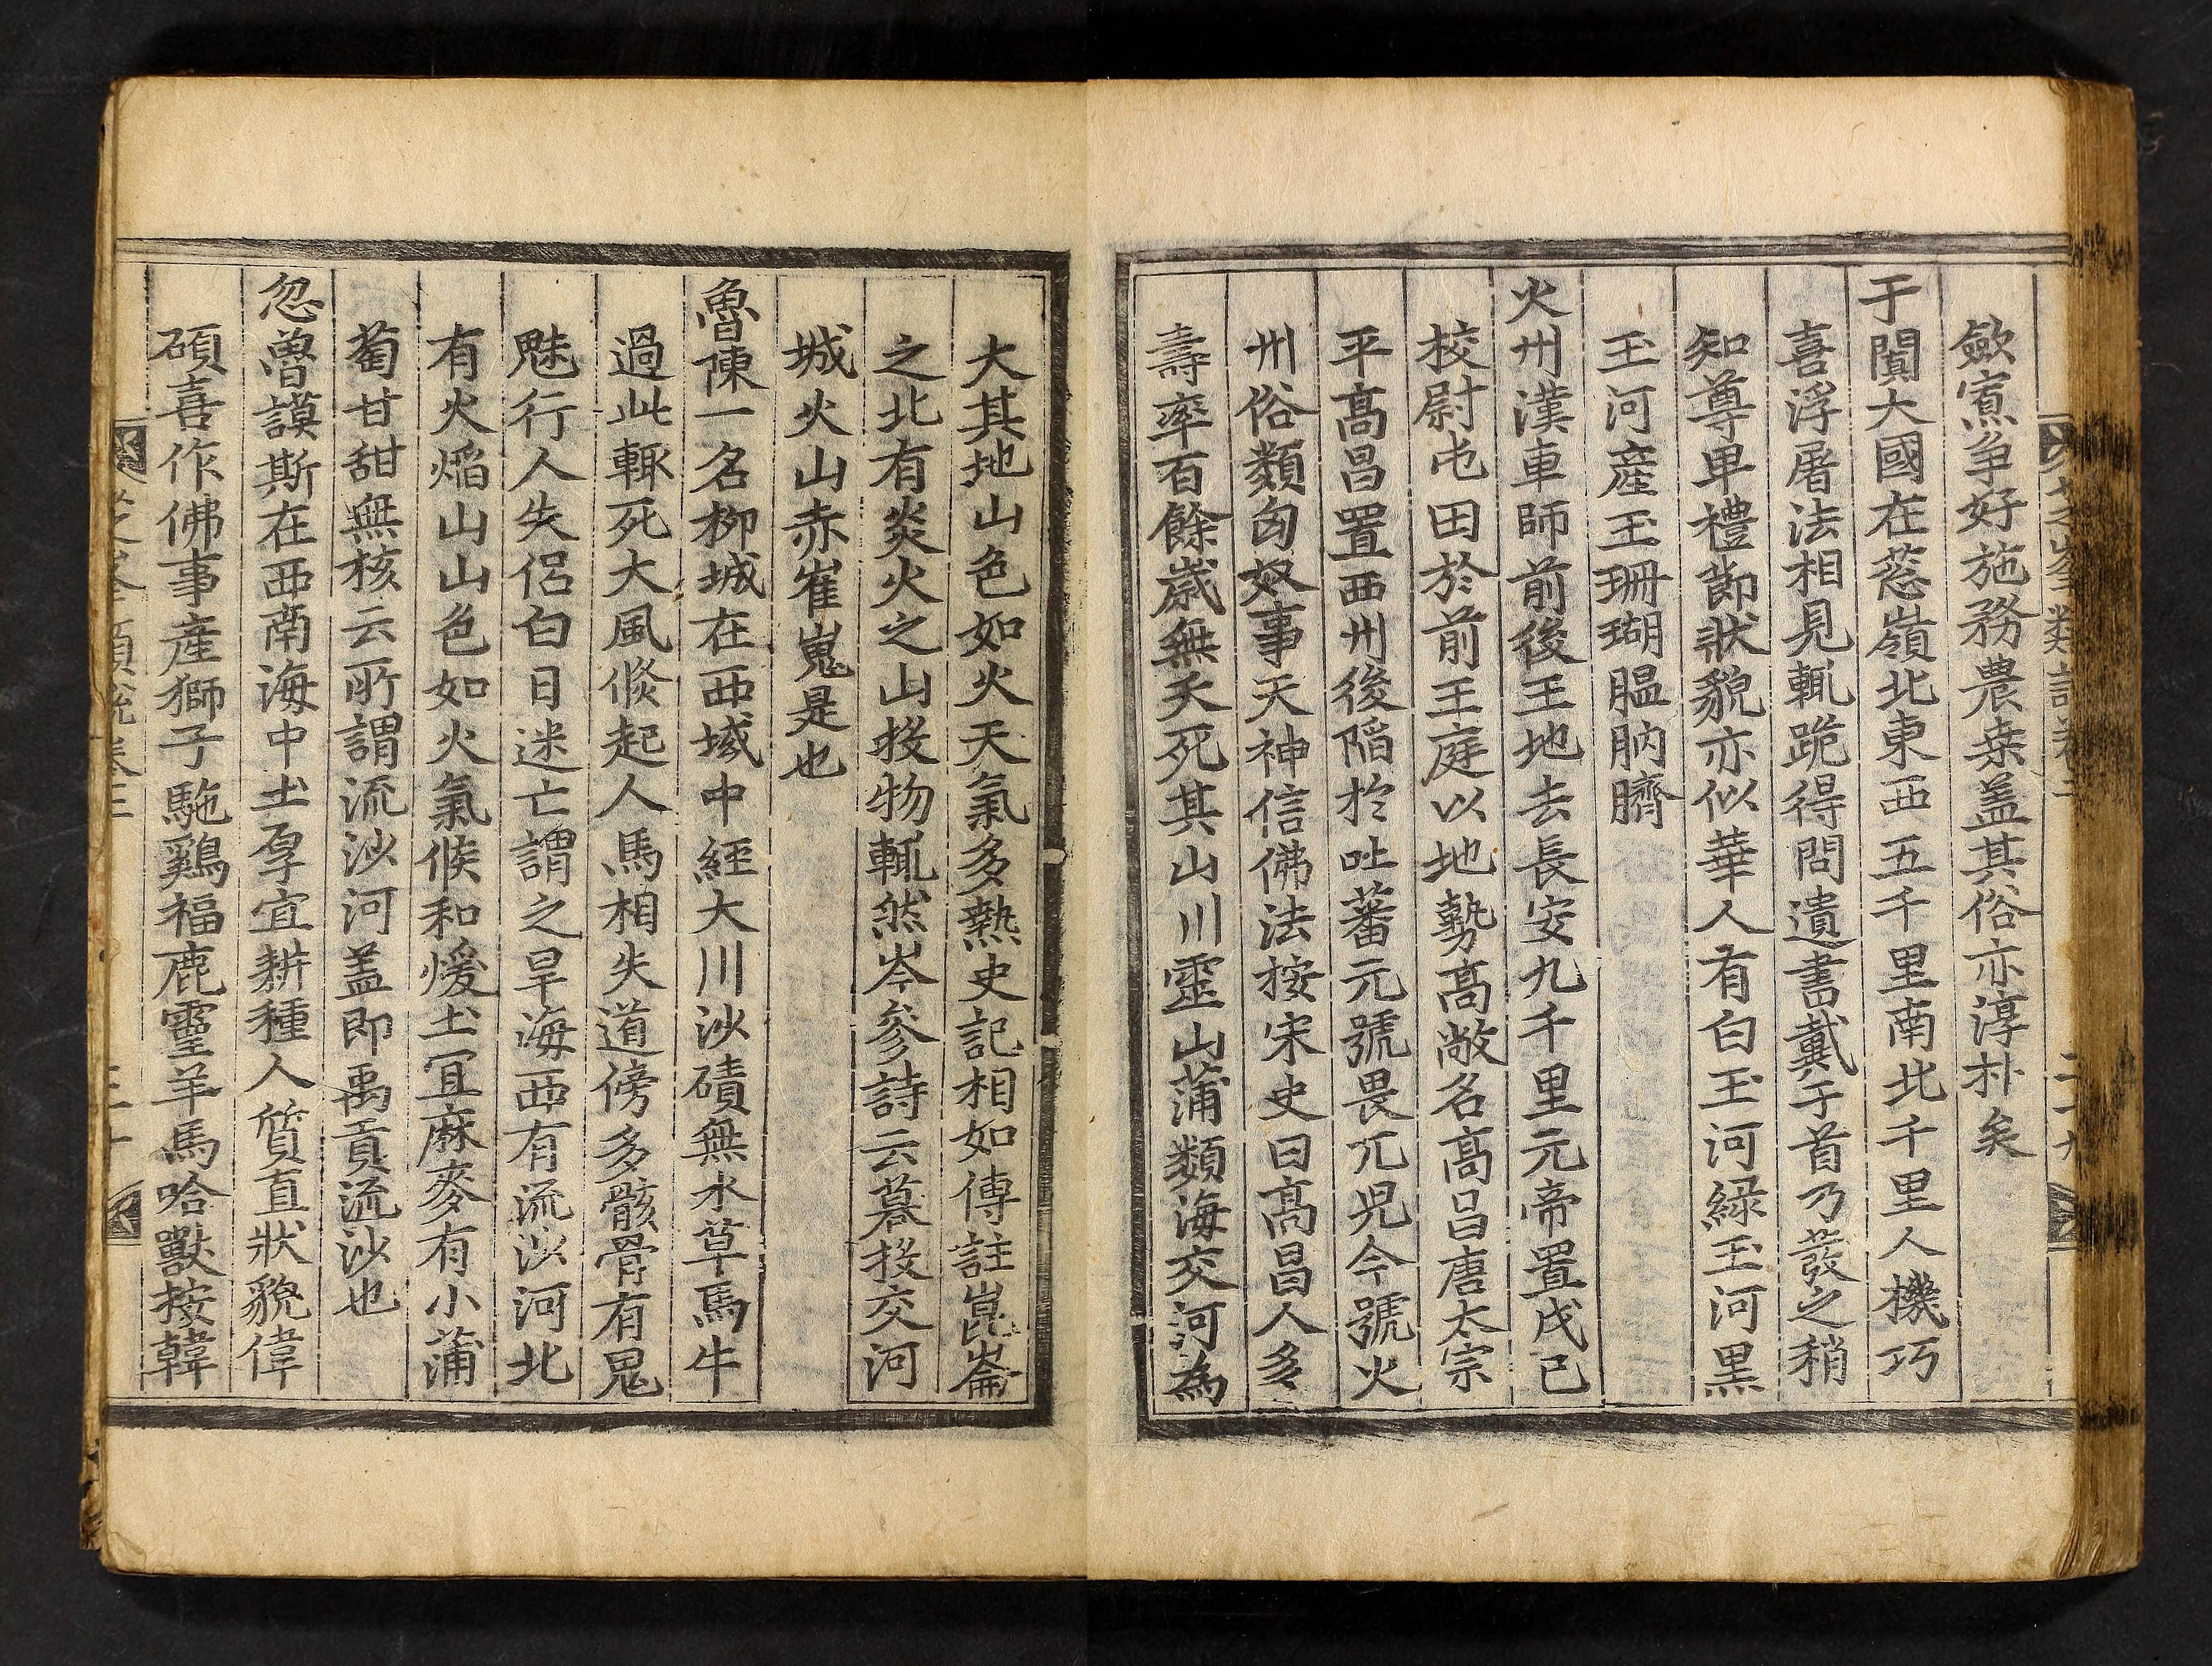 歛寡爭好施務農桒盖其俗亦淳朴矣
于闐大國在葱嶺北東西五千里南北千里人機巧
喜浮屠法相見輒跪得問遺書戴于首乃發之稍
知尊卑禮節狀貌亦似華人有白玉河綠玉河黑
玉河産玉珊瑚膃肭臍
火州漢車師前後王地去長安九千里元帝置戊己
校尉屯田於前王庭以地勢髙敞名髙昌唐太宗
平髙昌置西州後陷於吐蕃元號畏兀児今號火
州俗類匈奴事天神信佛法按宋史曰髙昌人多
壽率百餘歲無夭死其山川靈山蒲類海交河為
大其地山色如火天氣多熱史記相如傳註崑崙
之北有炎火之山投物輒然岑參詩云暮投交河
城火山赤崔嵬是也
魯陳一名柳城在西域中經大川沙磧無水草馬牛
過此輒死大風倐起人馬相失道傍多骸骨有鬼
魅行人失侶白日迷亡謂之旱海西有流沙河北
有火焰山山色如火氣候和煖土冝麻麥有小蒲
萄甘甜無核云所謂流沙河盖即禹貢流沙也
忽魯謨斯在西南海中土厚宜耕種人質直狀貌偉
碩喜作佛事産獅子駞鷄福鹿靈羊馬哈獸按韓